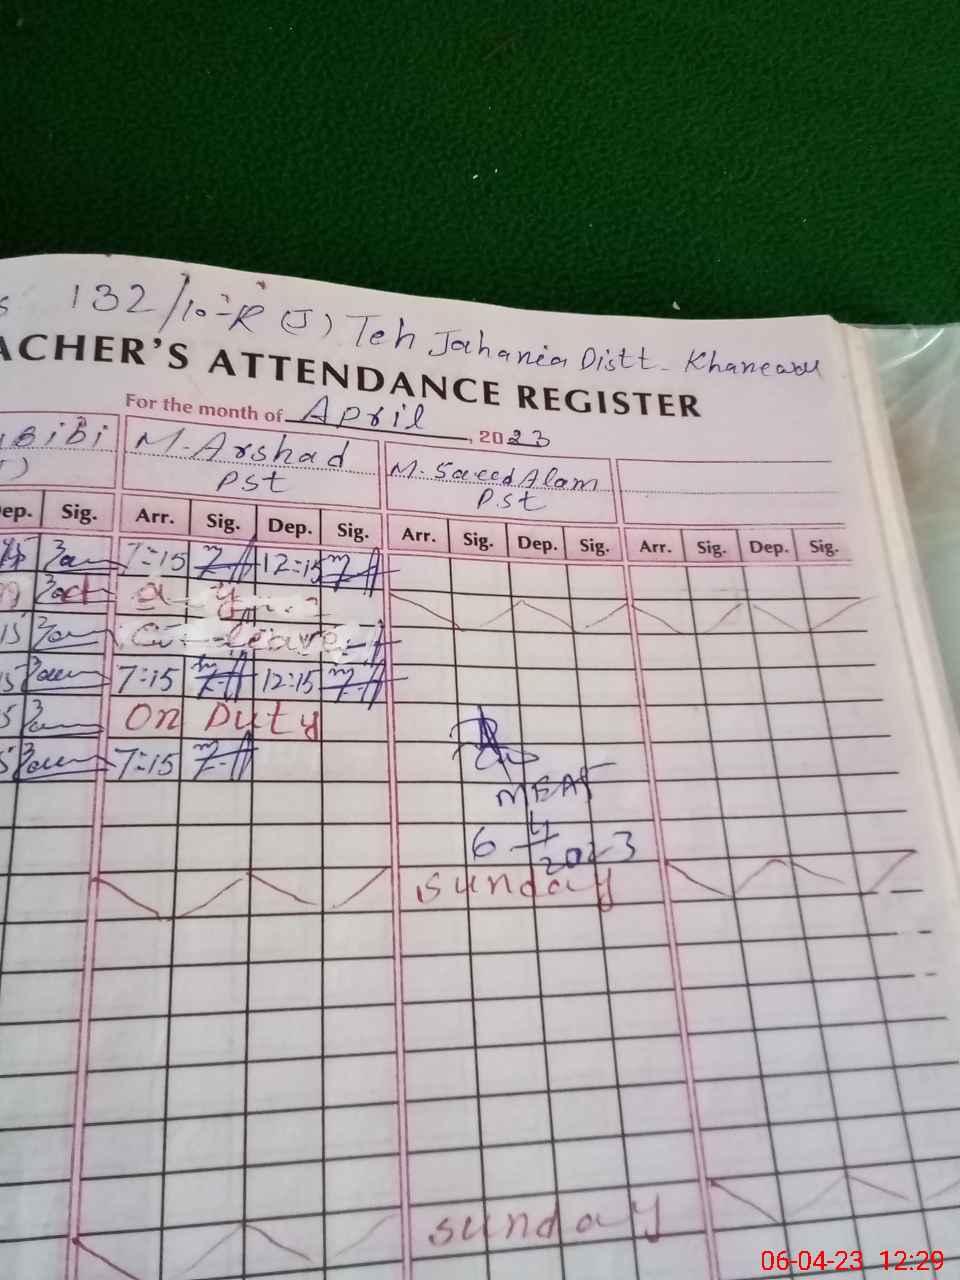 132/10-R (J) Teh Jahania Distt. Khanewal
ACHER'S ATTENDANCE REGISTER
For the month of April, 2023
Bibi M. Arshad M. Saeed Alam
PST PST
ep. Sig. Arr. Sig. Dep. Sig. Arr. Sig. Dep. Sig. Arr. Sig. Dep. Sig.
7:15 12:15
leave
15 7:15 12:15
On Duty
7:15
MEA
6-4-2023
sunday
sunday
06-04-23 12:29